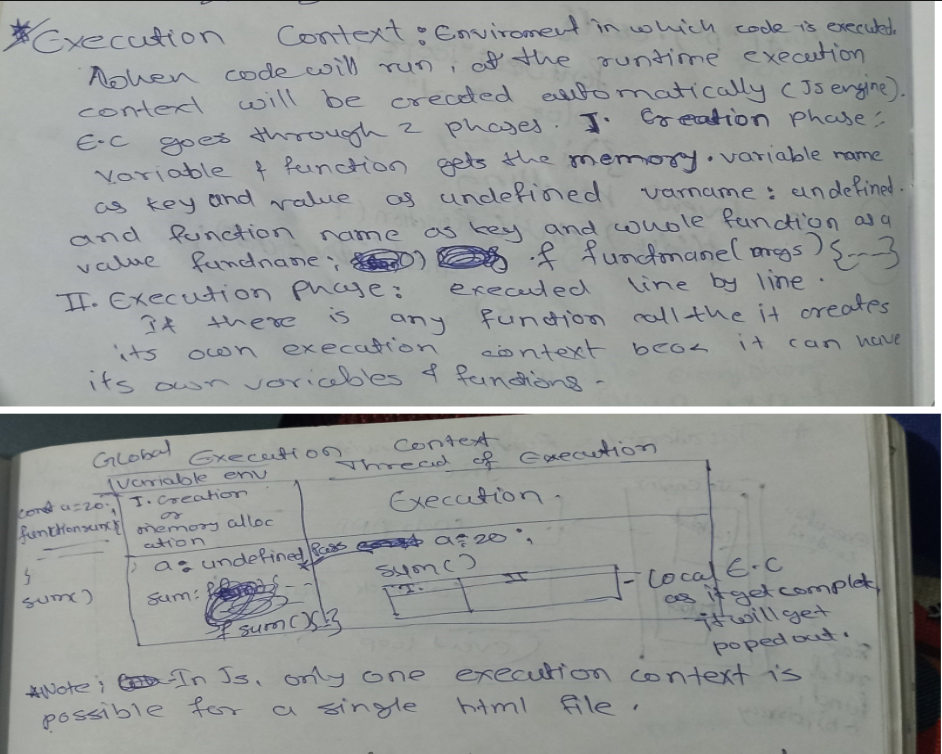 *Execution Context : Enviroment in which code is executed.
When code will run, at the runtime execution
context will be created automatically (Js engine).
E.C goes through 2 phases. I. Creation phase :
variable & function gets the memory. variable name
as key and value as undefined varname : undefined.
and function name as key and whole function as a
value : f functname(args){---}
II. Execution phase : executed line by line.
If there is any function call the it creates
its own execution context becoz it can have
its own variables & functions -
Global Execution Context
variable env Thread of Execution
const a=20;
function sum(){
}
sum()
I. Creation
or
memory alloc
ation
a : undefined
sum:
f sum(){}
Execution.
a = 20 ;
sum()
I. II
- Local E.C
as it get complet,
it will get
poped out.
*Note ; In Js, only one execution context is
possible for a single html file.